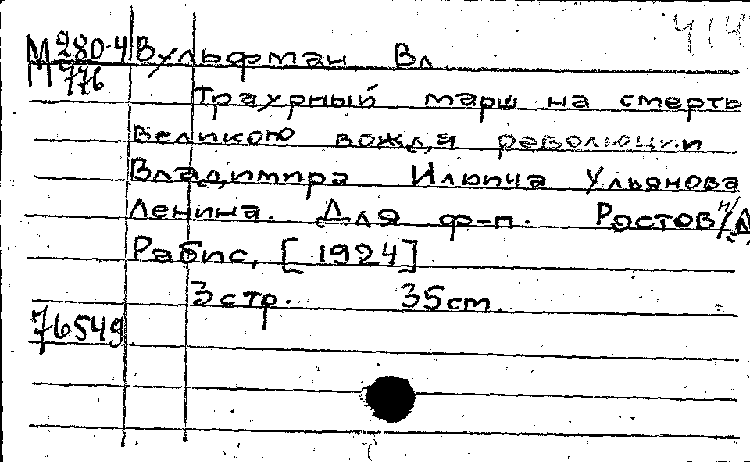 414
М 280-4 Вульфман Вл
М 776
Траурный марш на смерть
Великого вождя революции
Владимира Ильича Ульянова
Ленина. Для ф-п. Ростов н/Д,
Рабис, [1924]
3 стр. 35 cm.
76549